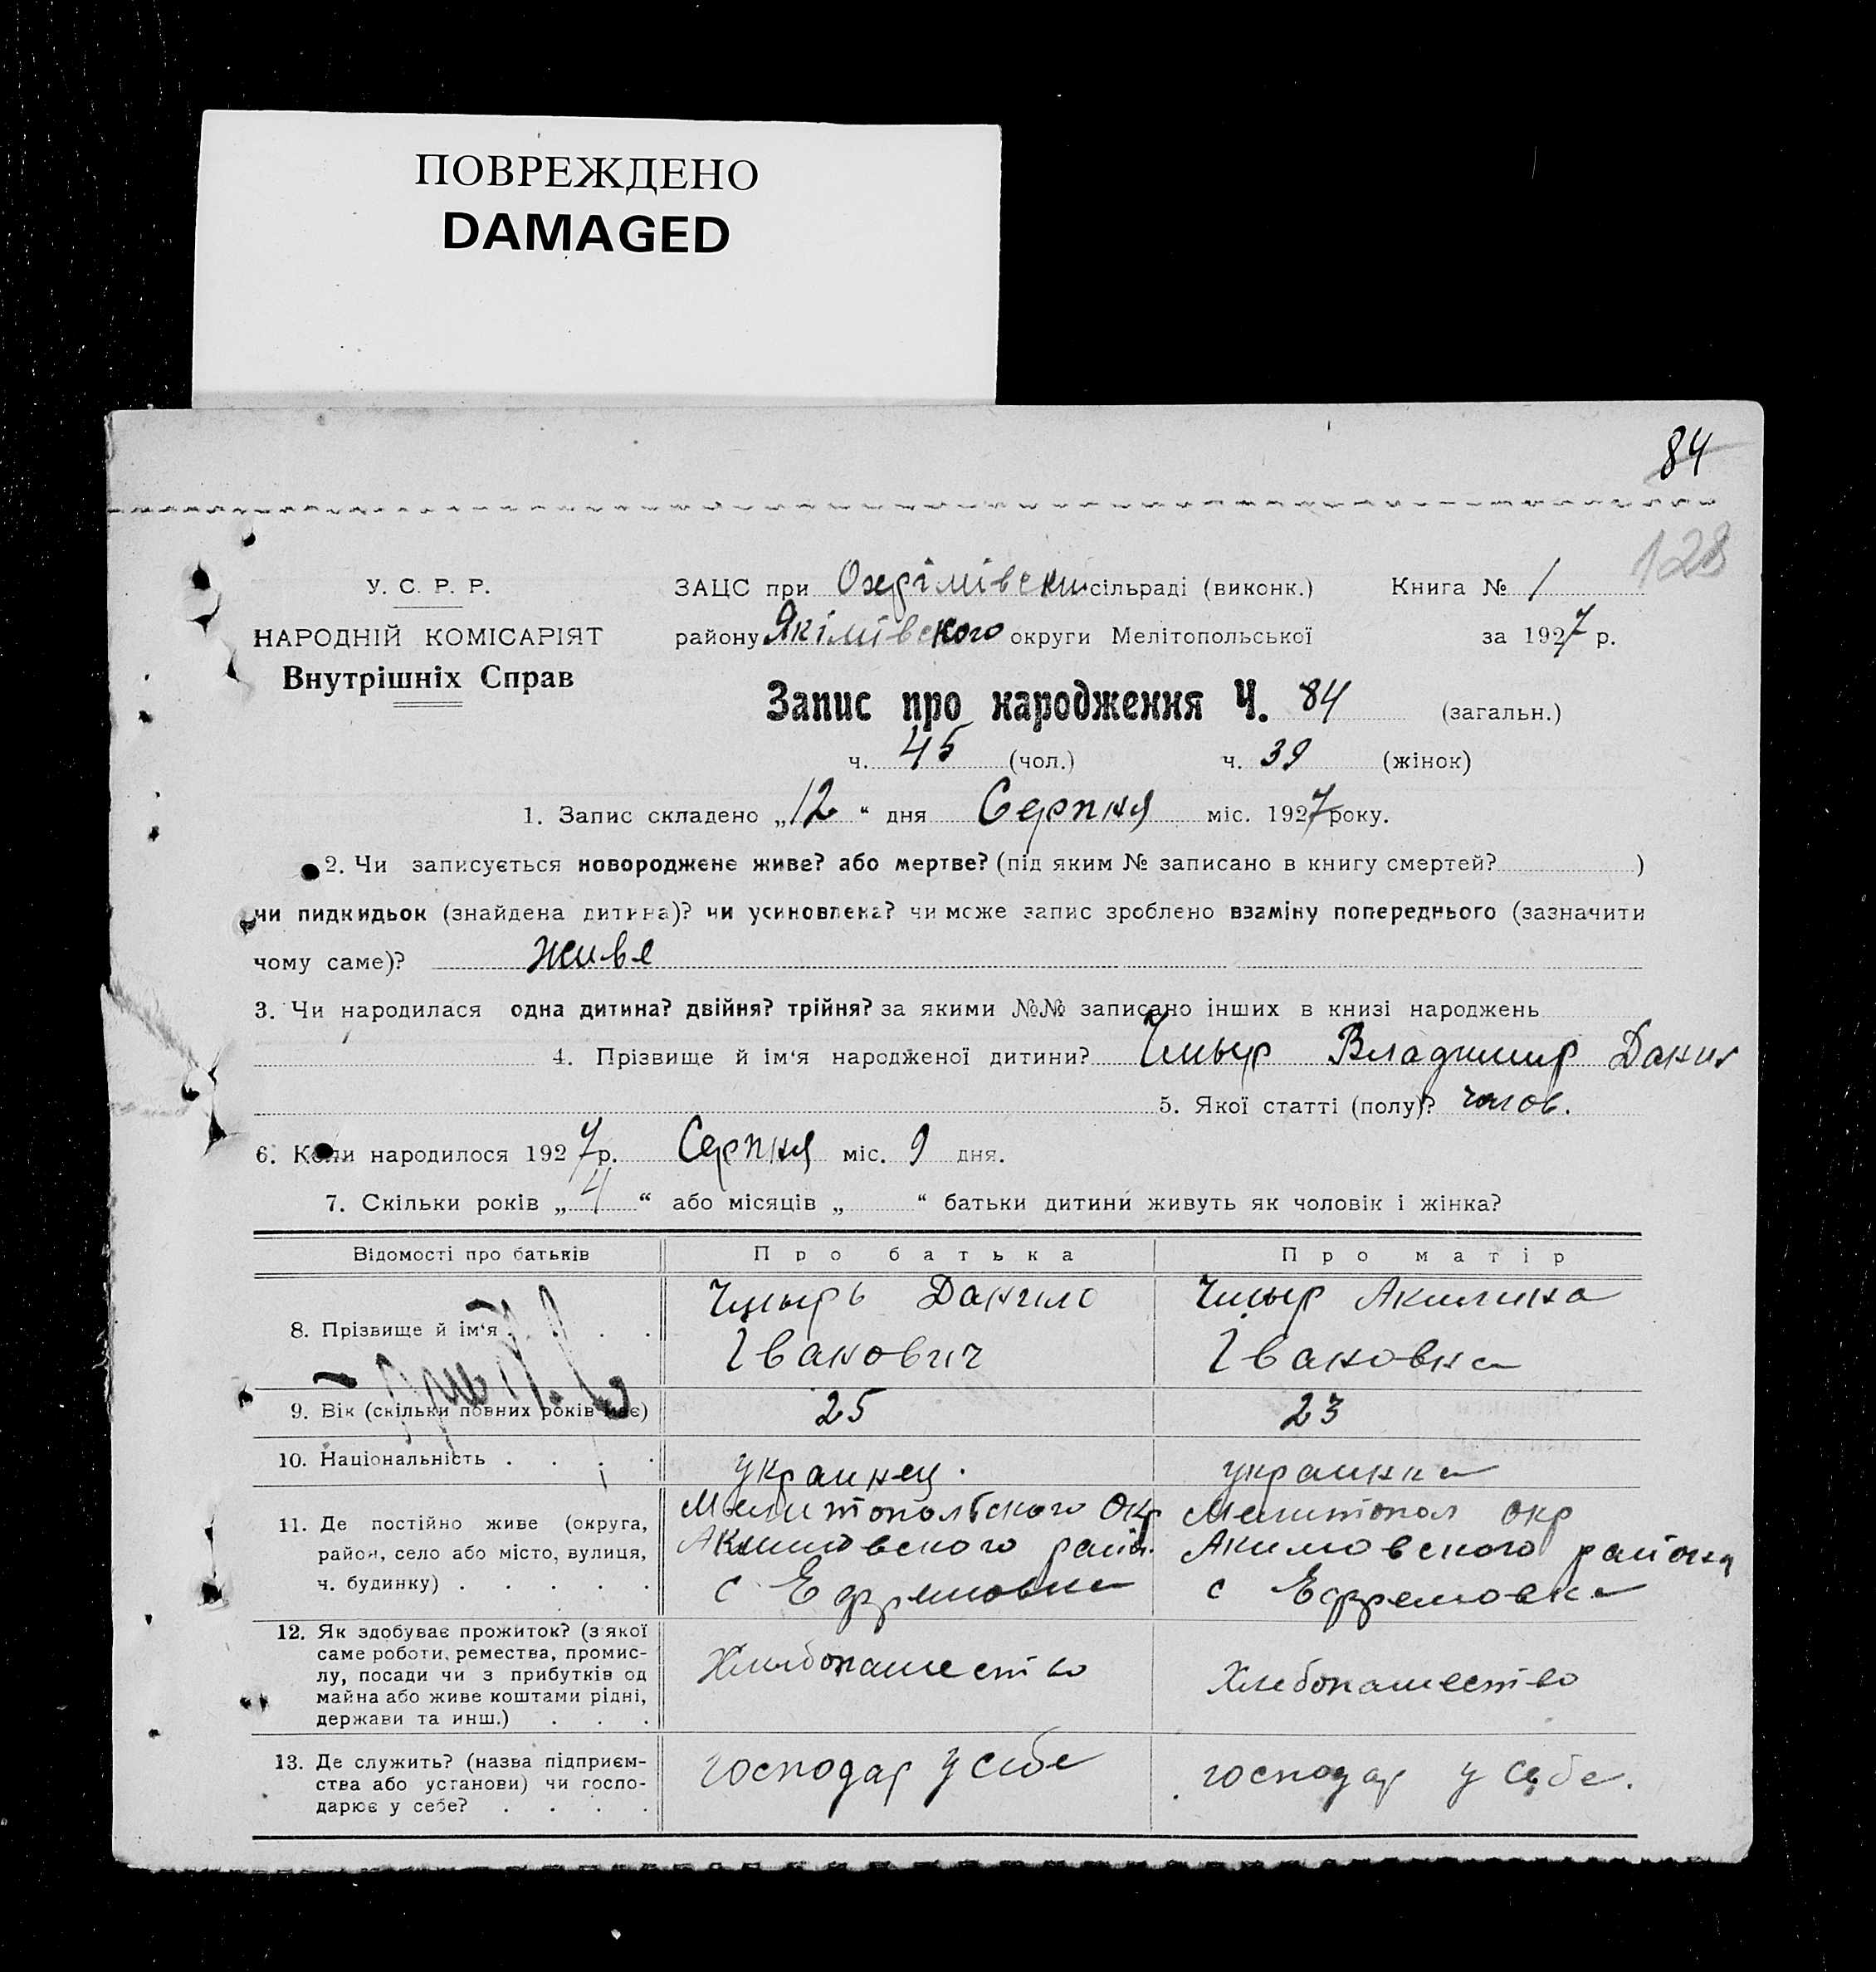 ПОВРЕЖДЕНО
DAMAGED
84
128
У. С. Р. Р.
НАРОДНІЙ КОМІСАРІЯТ
Внутрішніх Справ
ЗАЦС при сільраді (виконк.) Книга № 1
району Якімівского округи Мелітопольської за 1927 р.
Запис про народження Ч. 84 (загальн.)
ч. 45 (чол.) ч. 39 (жінок)
1. Запис складено „12“ дня Серпня міс. 1927 року.
2. Чи записується новороджене живе? або мертве? (під яким № записано в книгу смертей? )
чи пидкидьок (знайдена дитина)? чи усиновлена? чи може запис зроблено взаміну попереднього (зазначити
чому саме)? живе
3. Чи народилася одна дитина? двійня? трійня? за якими №№ записано інших в книзі народжень
4. Прізвище й ім‘я народженої дитини? Владимир Данил
5. Якої статті (полу)? чолов.
6. Коли народилося 1927 р. Серпня міс. 9 дня.
7. Скільки років „4“ або місяців „ “ батьки дитини живуть як чоловік і жінка?
Відомості про батьків Про батька Про матір
8. Прізвище й ім‘я . . . .
Данило
Іванович
Акилина
Івановна
9. Вік (скільки повних років має) 25 23
10. Національність . . . . украинец. украинка
11. Де постійно живе (округа,
район, село або місто, вулиця,
ч. будинку) . . . . .
Мелитопольского Окр
Акимовского район.
с Ефремовка
Мелитопол окр
Акимовского района
с Ефремовка
12. Як здобуває прожиток? (з якої
саме роботи, ремества, промис-
лу, посади чи з прибутків од
майна або живе коштами рідні,
держави та инш.) . . .
Хлибопашество
Хлебопашество
13. Де служить? (назва підприєм-
ства або установи) чи госпо-
дарює у себе? . . . .
господар у себе
господар у себе.